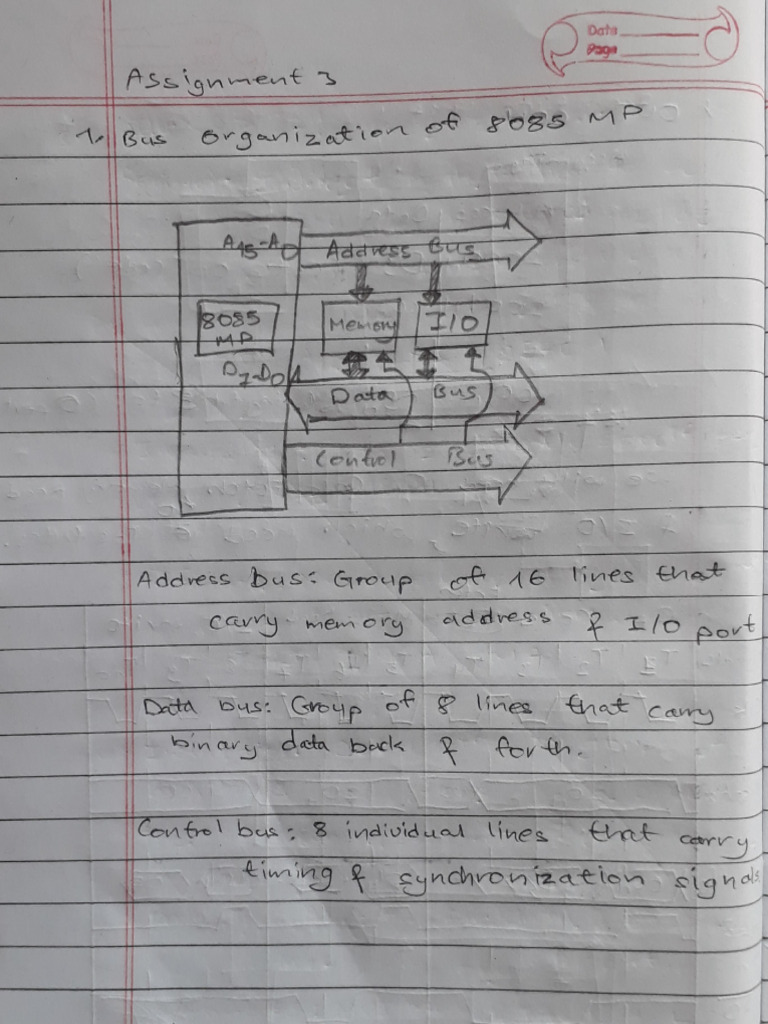 Date
Page
Assignment 3
1. Bus organization of 8085 MP
A15-A0 Address Bus
8085 MP
Memory
I/O
D7-D0
Data Bus
Control Bus
Address bus: Group of 16 lines that
carry memory address & I/O port
Data bus: Group of 8 lines that carry
binary data back & forth.
Control bus: 8 individual lines that carry
timing & synchronization signals